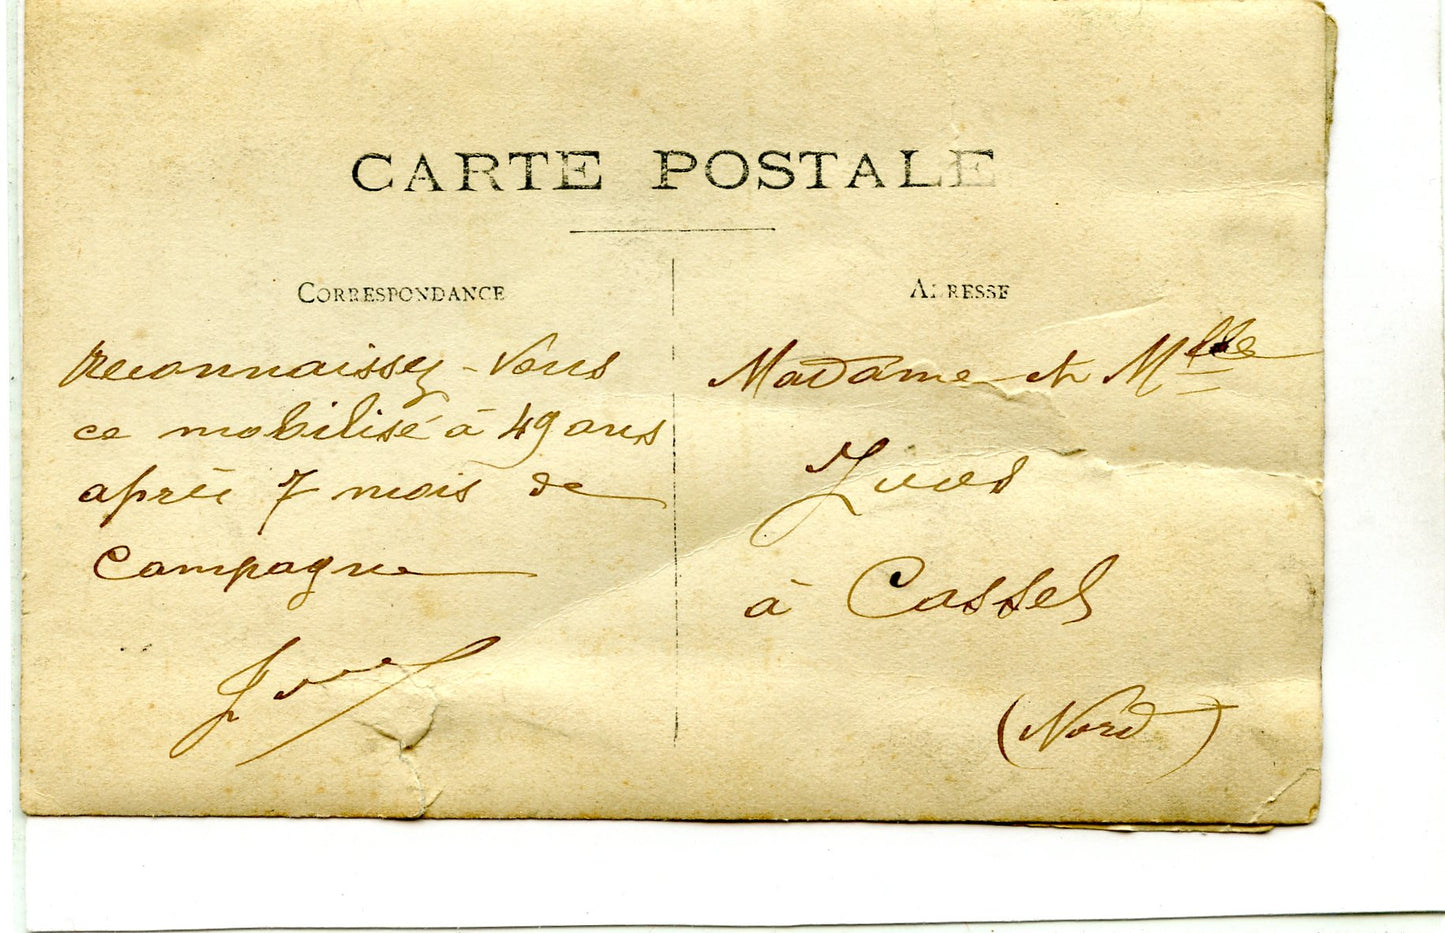 CARTE POSTALE
CORRESPONDANCE
reconnaissez-vous
ce mobilisé à 49 ans
après 7 mois de
Campagne
ADRESSE
Madame et Mlle
à Cassel
(Nord)